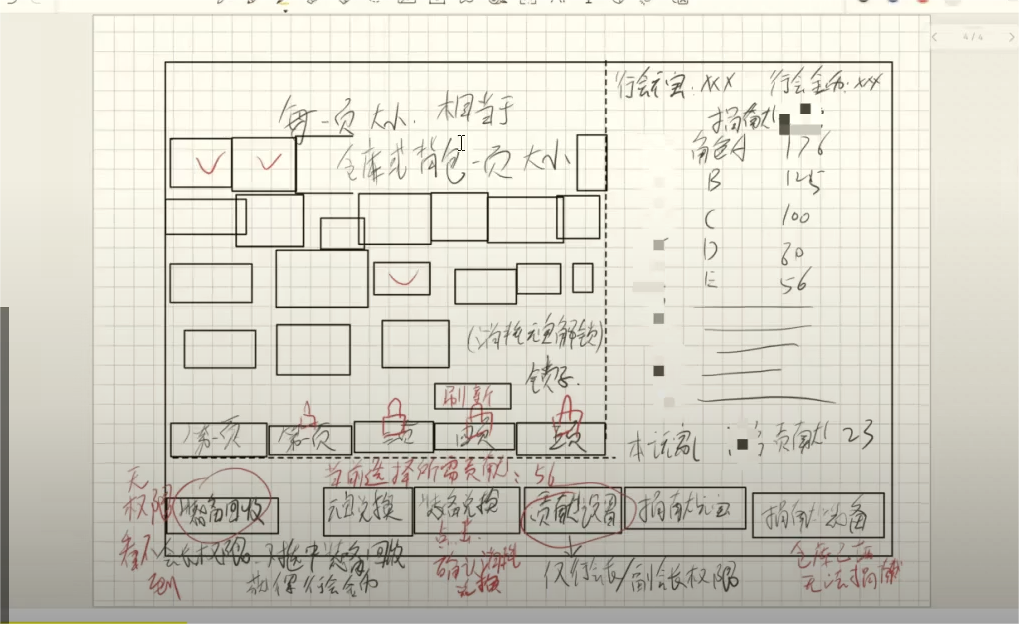 行会元宝:XX 行会金币:XX
每一页大小.相当于
仓库或背包一页大小
捐献
角色A 176
B 125
C 100
D 80
E 56
(消耗元宝解锁)
锁子.
刷新
第一页 第二页 三页 四页 五页
本玩家 贡献 23
当前选择所需贡献:56
无
权限
看不
到
装备回收 元宝兑换 装备兑换 贡献设置 捐献元宝 捐献装备
点击
确认消耗
兑换
会长权限.对选中装备回收
获得行会金币
仅行长/副会长权限
仓库已满
无法捐献
4/4